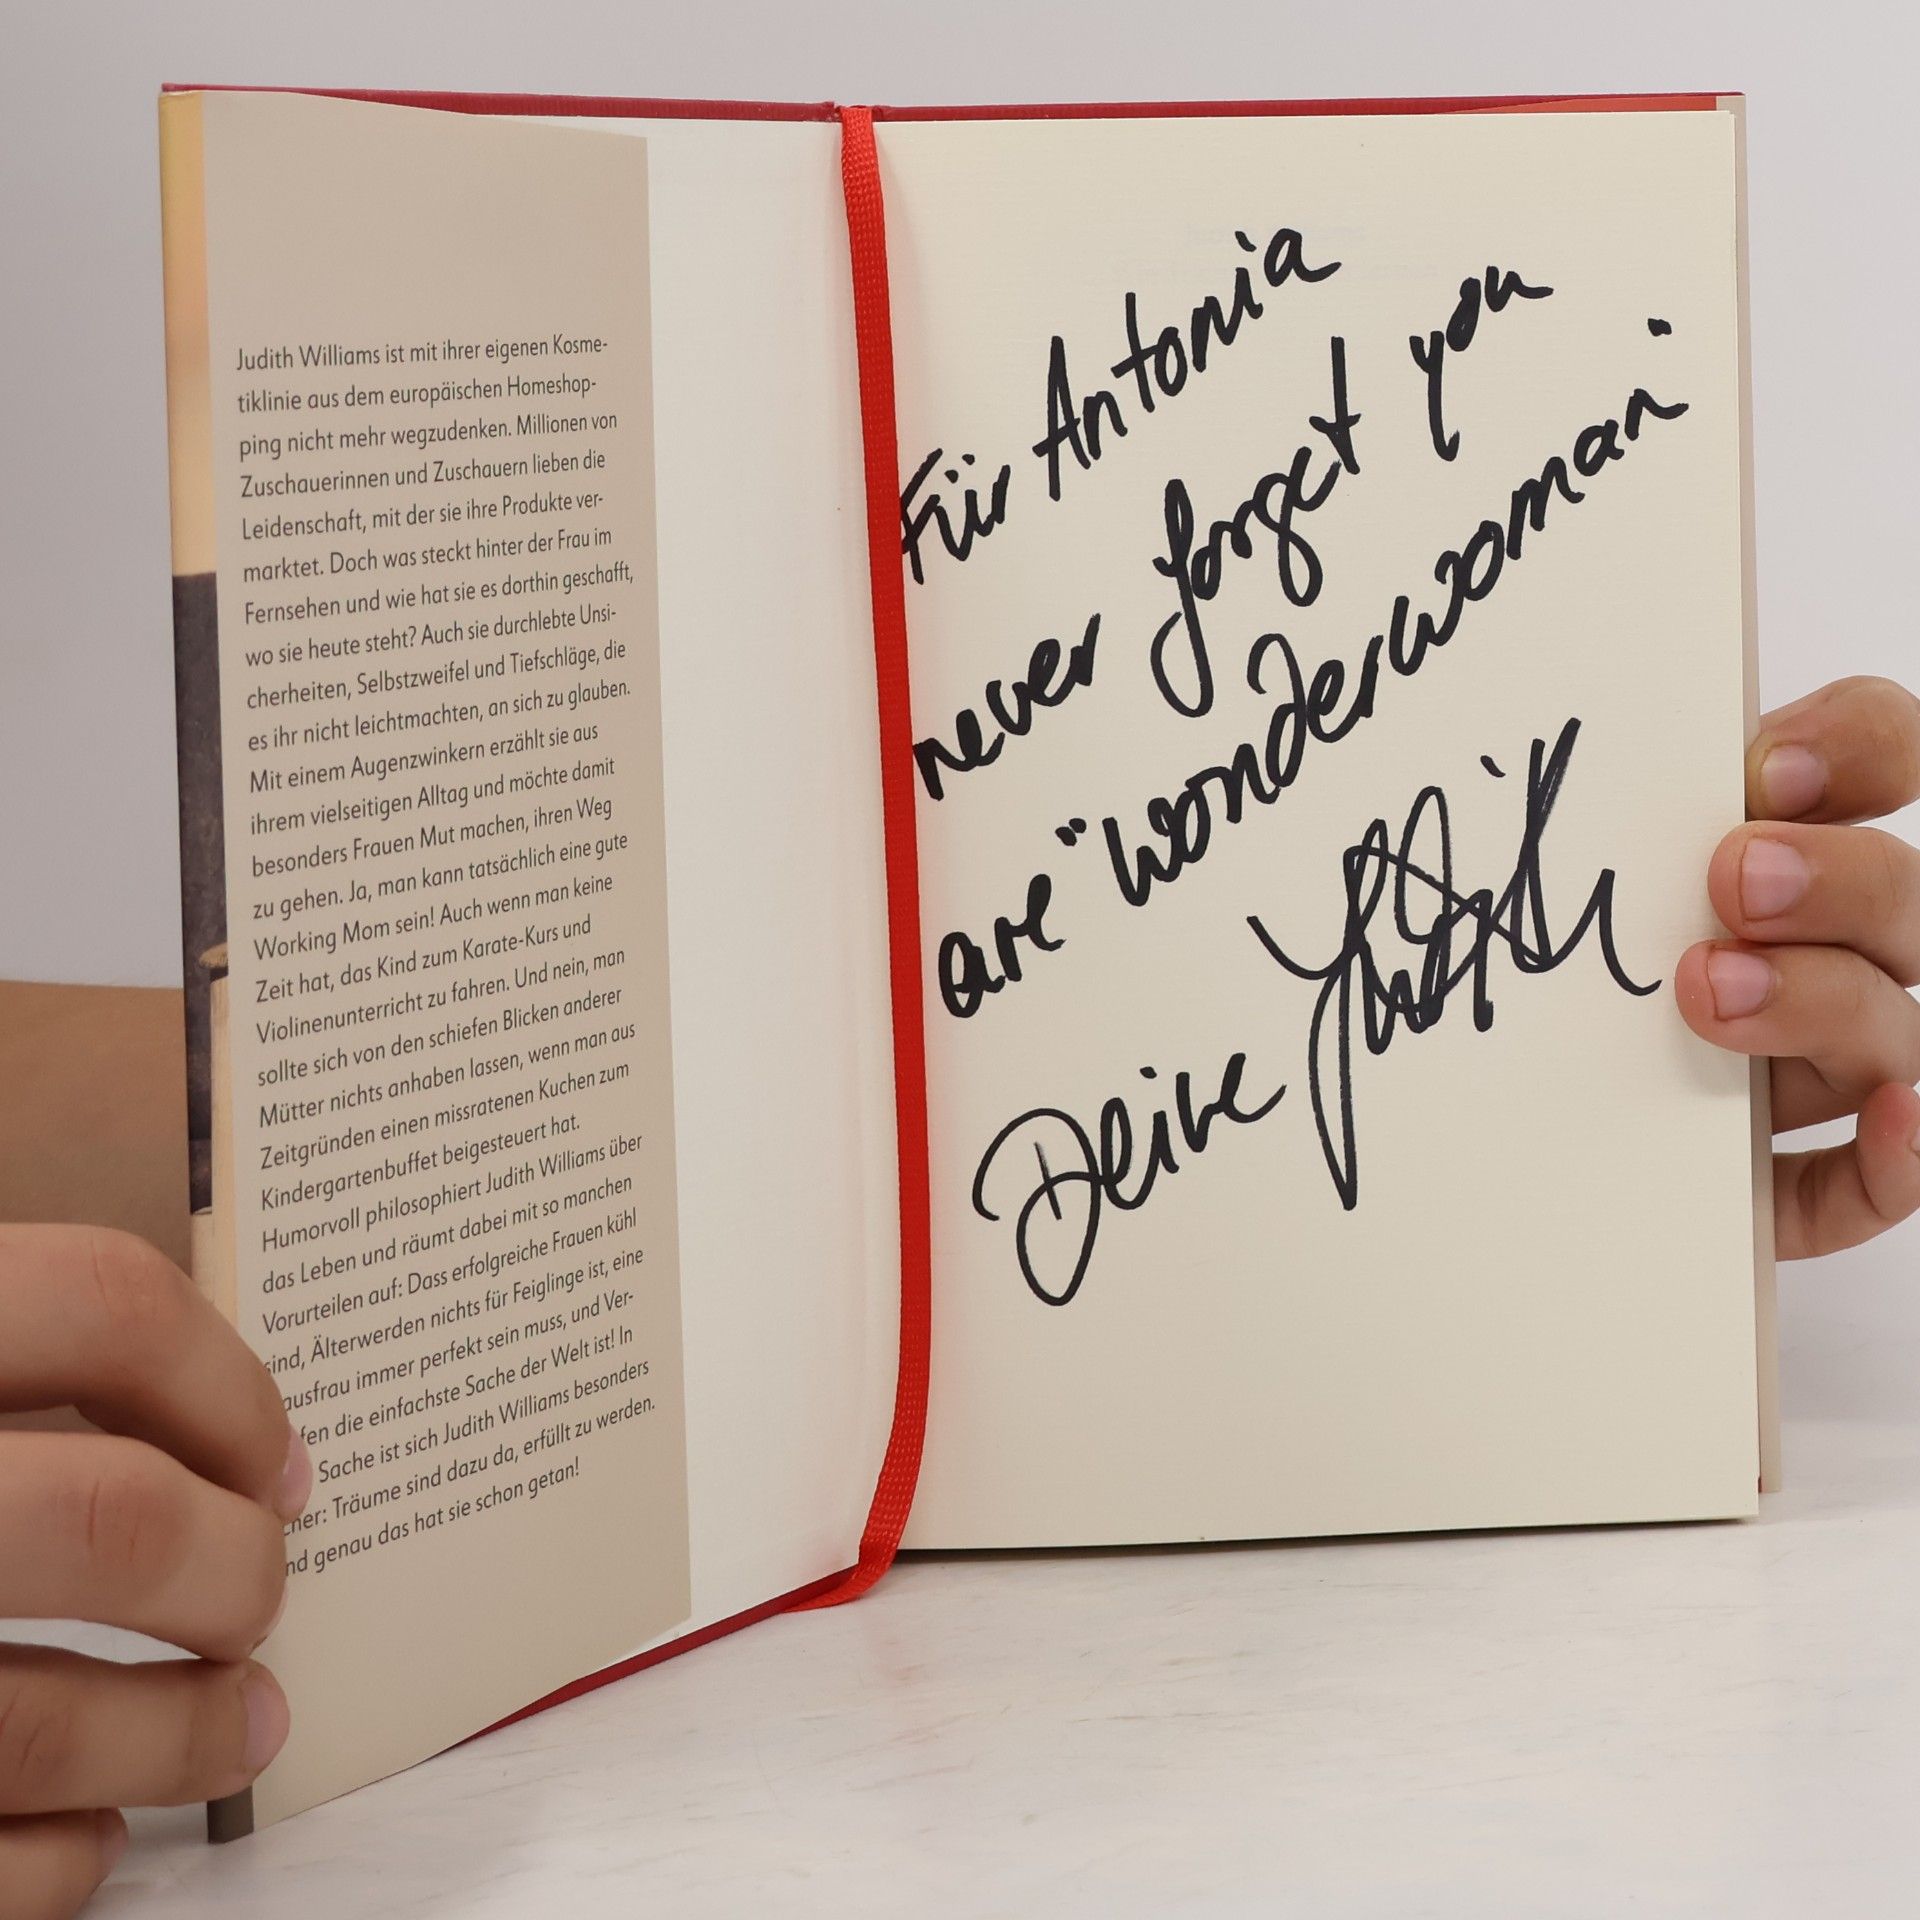 Judith Williams ist mit ihrer eigenen Kosme-
tiklinie aus dem europäischen Homeshop-
ping nicht mehr wegzudenken. Millionen von
Zuschauerinnen und Zuschauern lieben die
Leidenschaft, mit der sie ihre Produkte ver-
marktet. Doch was steckt hinter der Frau im
Fernsehen und wie hat sie es dorthin geschafft,
wo sie heute steht? Auch sie durchlebte Unsi-
cherheiten, Selbstzweifel und Tiefschläge, die
es ihr nicht leichtmachten, an sich zu glauben.
Mit einem Augenzwinkern erzählt sie aus
ihrem vielseitigen Alltag und möchte damit
besonders Frauen Mut machen, ihren Weg
zu gehen. Ja, man kann tatsächlich eine gute
Working Mom sein! Auch wenn man keine
Zeit hat, das Kind zum Karate-Kurs und
Violinenunterricht zu fahren. Und nein, man
sollte sich von den schiefen Blicken anderer
Mütter nichts anhaben lassen, wenn man aus
Zeitgründen einen missratenen Kuchen zum
Kindergartenbuffet beigesteuert hat.
Humorvoll philosophiert Judith Williams über
das Leben und räumt dabei mit so manchen
Vorurteilen auf: Dass erfolgreiche Frauen kühl
sind, Älterwerden nichts für Feiglinge ist, eine
ausfrau immer perfekt sein muss, und Ver-
fen die einfachste Sache der Welt ist! In
Sache ist sich Judith Williams besonders
cher: Träume sind dazu da, erfüllt zu werden.
nd genau das hat sie schon getan!
Für Antonia
never forget you
are "wonderwoman"
Deine Judith